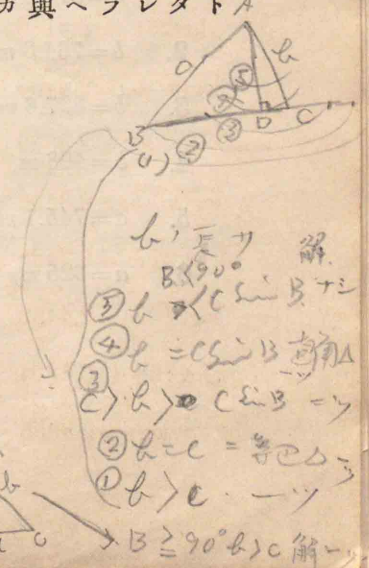 カ與ヘラレタトA
b
⑤
④
D
C
B
③
(1) ②
bノ長サ 解
B<90°
⑤ b < C Sin B ナシ
④ b = C Sin B 直角△一ツ
③ C > b > C Sin B 二ツ
② b = C = 等辺△一ツ
① b > C 一ツ
b
C
B ≧ 90° b > C 解一ツ